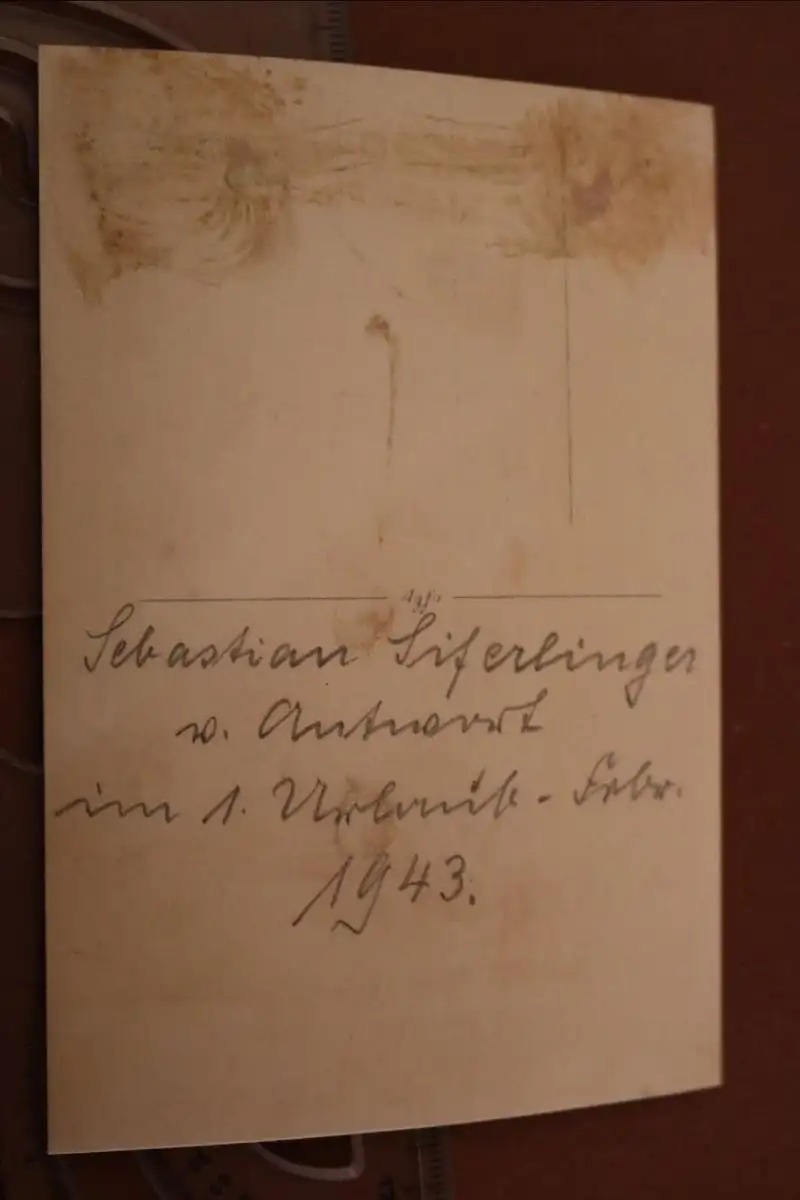 Agfa
Sebastian Siferlinger
v. Antwort
im 1. Urlaub - Febr.
1943.